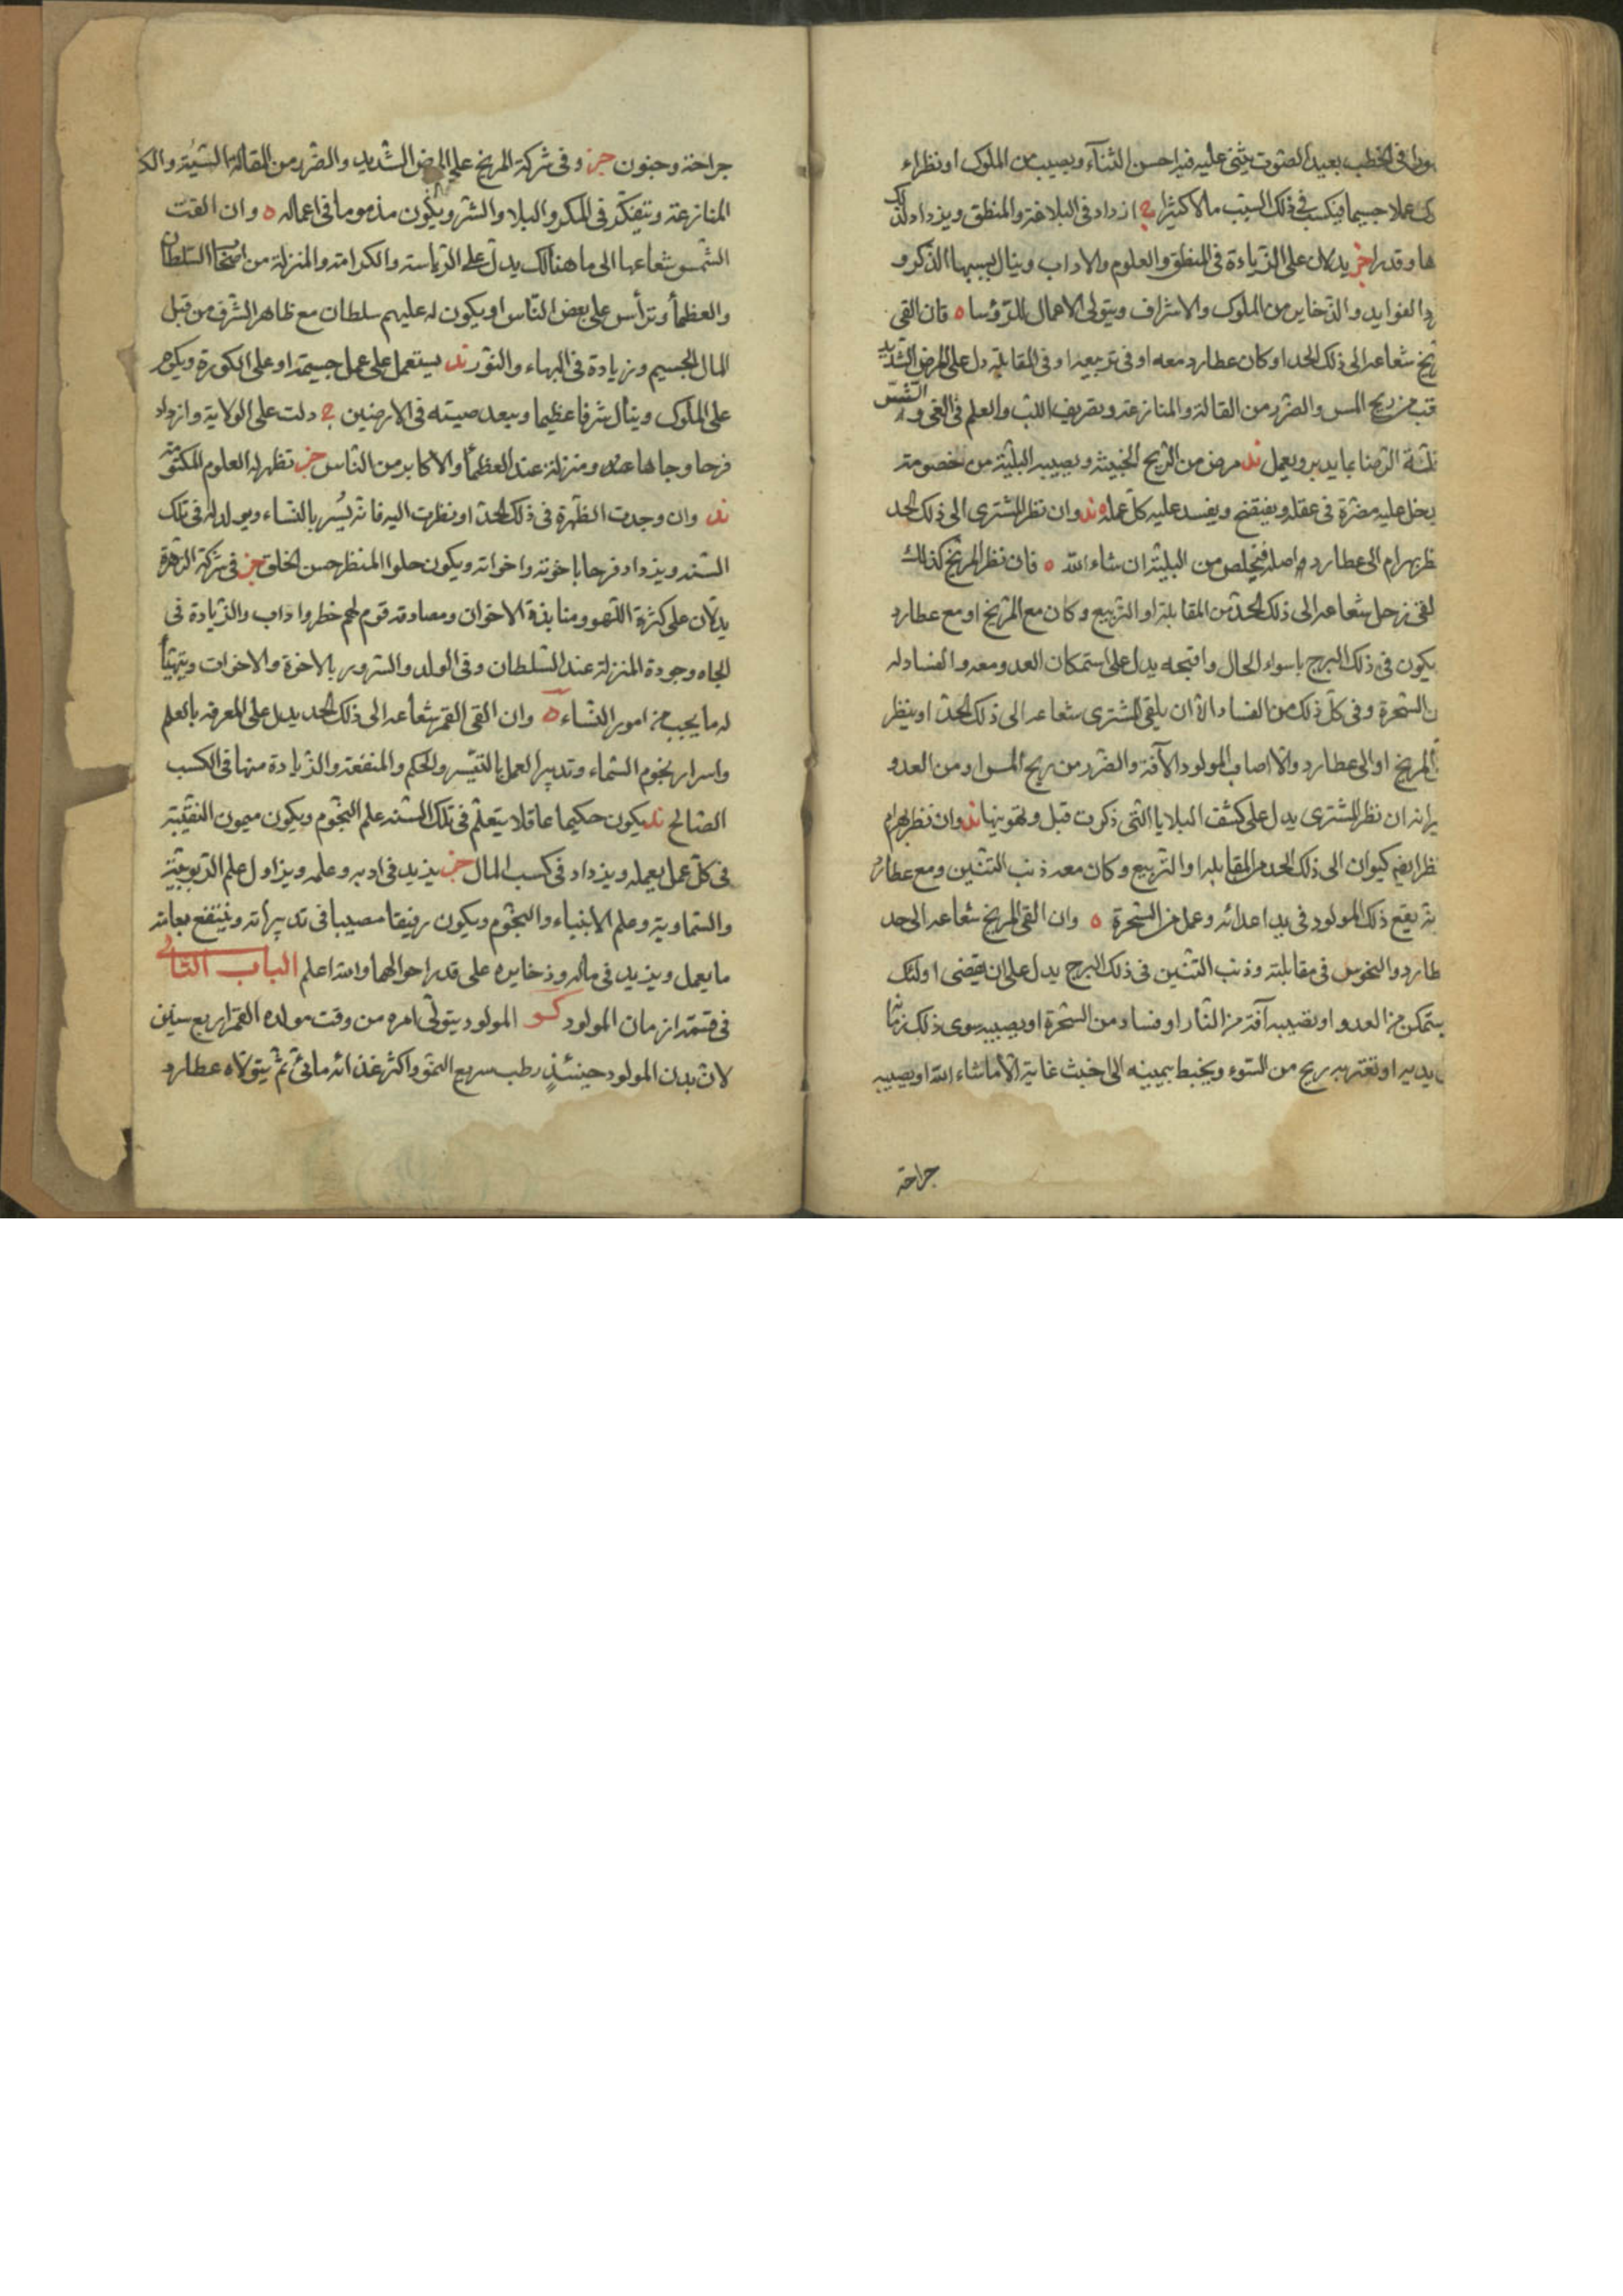 في الخطب بعيد الصوت يثنى عليه فيه احسن الثناء ويصيب من الملوك او نظراء
عملا جسيما فيكسب في ذلك السبب مالا كثيرا ح ازداد في البلاغة والمنطق ويزداد لذلك
ها وقدرا خر يدلان على الزيادة في المنطق والعلوم والاداب وينال بسببها الذكر و
الفوايد والذخاير من الملوك والاشراف ويتولى الاعمال للرؤسا ه فان القى
شعاعه الى ذلك الحد او كان عطارد معه او في تربيعه او في المقابلة دل على المرض الشديد
من ريح المس والضرر من القالة والمنازعة
الرضا بما يدبر ويعمل ند مرض من الريح الخبيثة ويصيبه البلية من خصومة
يدخل عليه مضرة في عقله ويفتضح ويفسد عليه كل عمله ه ند وان نظر المشترى الى ذلك الحد
بهرام الى عطارد واصله فيخلص من البلية ان شاء الله ه فان نظر المريخ كذلك
القى زحل شعاعه الى ذلك الحد من المقابلة او التربيع وكان مع المريخ او مع عطارد
يكون في ذلك البرج باسواء الحال واقبحه يدل على استمكان العدو معه والفساد له
السحرة وفي كل ذلك من الفساد الا ان يلقى المشترى شعاعه الى ذلك الحد او ينظر
المريخ او الى عطارد والا اصاب المولود الآفة والضرر من ريح المس او من العدو
ان نظر المشترى يدل على كشف البلايا التي ذكرت قبل وتهوينها ند وان نظر بهرام
كيوان الى ذلك الحد من المقابلة او التربيع وكان معه ذنب التنين ومع عطارد
يقع ذلك المولود في يد اعدائه وعمل من السحرة ه وان القى المريخ شعاعه الى حد
عطارد والنحوس في مقابلته وذنب التنين في ذلك البرج يدل على ان يقضى اولئك
يتمكن من العدو او يصيبه آفة من النار او فساد من السحرة او يصيبه سوى ذلك
يديه او تعتريه ريح من السوء ويخبط بيمينه الى خبث غاية الا ما شاء الله او يصيبه
جراحة
جراحة وجنون خر وفي شركة المريخ على المرض الشديد والضرر من القالة السيئة
المنازعة ويتفكر في المكر والبلاد والشر ويكون مذموما في اعماله ه وان القت
الشمس شعاعها الى ما هنالك يدل على الرياسة والكرامة والمنزلة من اصحاب السلطان
والعظماء وترأس على بعض الناس او يكون له عليهم سلطان مع ظاهر الشرف من قبل
المال الجسيم وزيادة في البهاء والنور ند يستعمل على عمل جسيمة او على الكورة ويكرم
على الملوك وينال شرفا عظيما ويبعد صيته في الارضين ح دلت على الولاية وازداد
فرحا وجاها عنده ومنزلة عند العظماء والاكابر من الناس خر تظهر له العلوم المكتومة
ند وان وجدت الظهرة في ذلك الحد او نظرت اليه فانه يُسر بالنساء ويولد له في تلك
السنة ويزداد فرحا باخوته واخواته ويكون حلوا المنظر حسن الخلق خر في شركة الزهرة
يدلان على كثرة اللهو ومنابذة الاخوان ومصادقة قوم لهم خطر واداب والزيادة في
الجاه وجودة المنزلة عند السلطان وفي الولد والسرور بالاخرة والاخوات ويتهيأ
له ما يجب من امور النساء ه وان القى القمر شعاعه الى ذلك الحد يدل على المعرفة بالعلم
واسرار نجوم السماء وتدبير العمل بالتيسر والحكم والمنفعة والزيادة منها في الكسب
الصالح ند يكون حكيما عاقلا يتعلم في تلك السنة علم النجوم ويكون ميمون النقيبة
في كل عمل يعمله ويزداد في كسب المال خر يزيد في ادبه وعلمه ويزاول علم الربوبية
والسماوية وعلم الانبياء والنجوم ويكون رفيقا مصيبا في تدبيراته وينتفع بعامة
ما يعمل ويزيد في ماله وذخايره على قدر احوالهما والله اعلم الباب الثاني
في قسمة ازمان المولود كو المولود يتولى امره من وقت مولده القمر اربع سنين
لان بدن المولود حينئذٍ رطب سريع النمو واكثر غذائه مائى ثم يتولاه عطارد